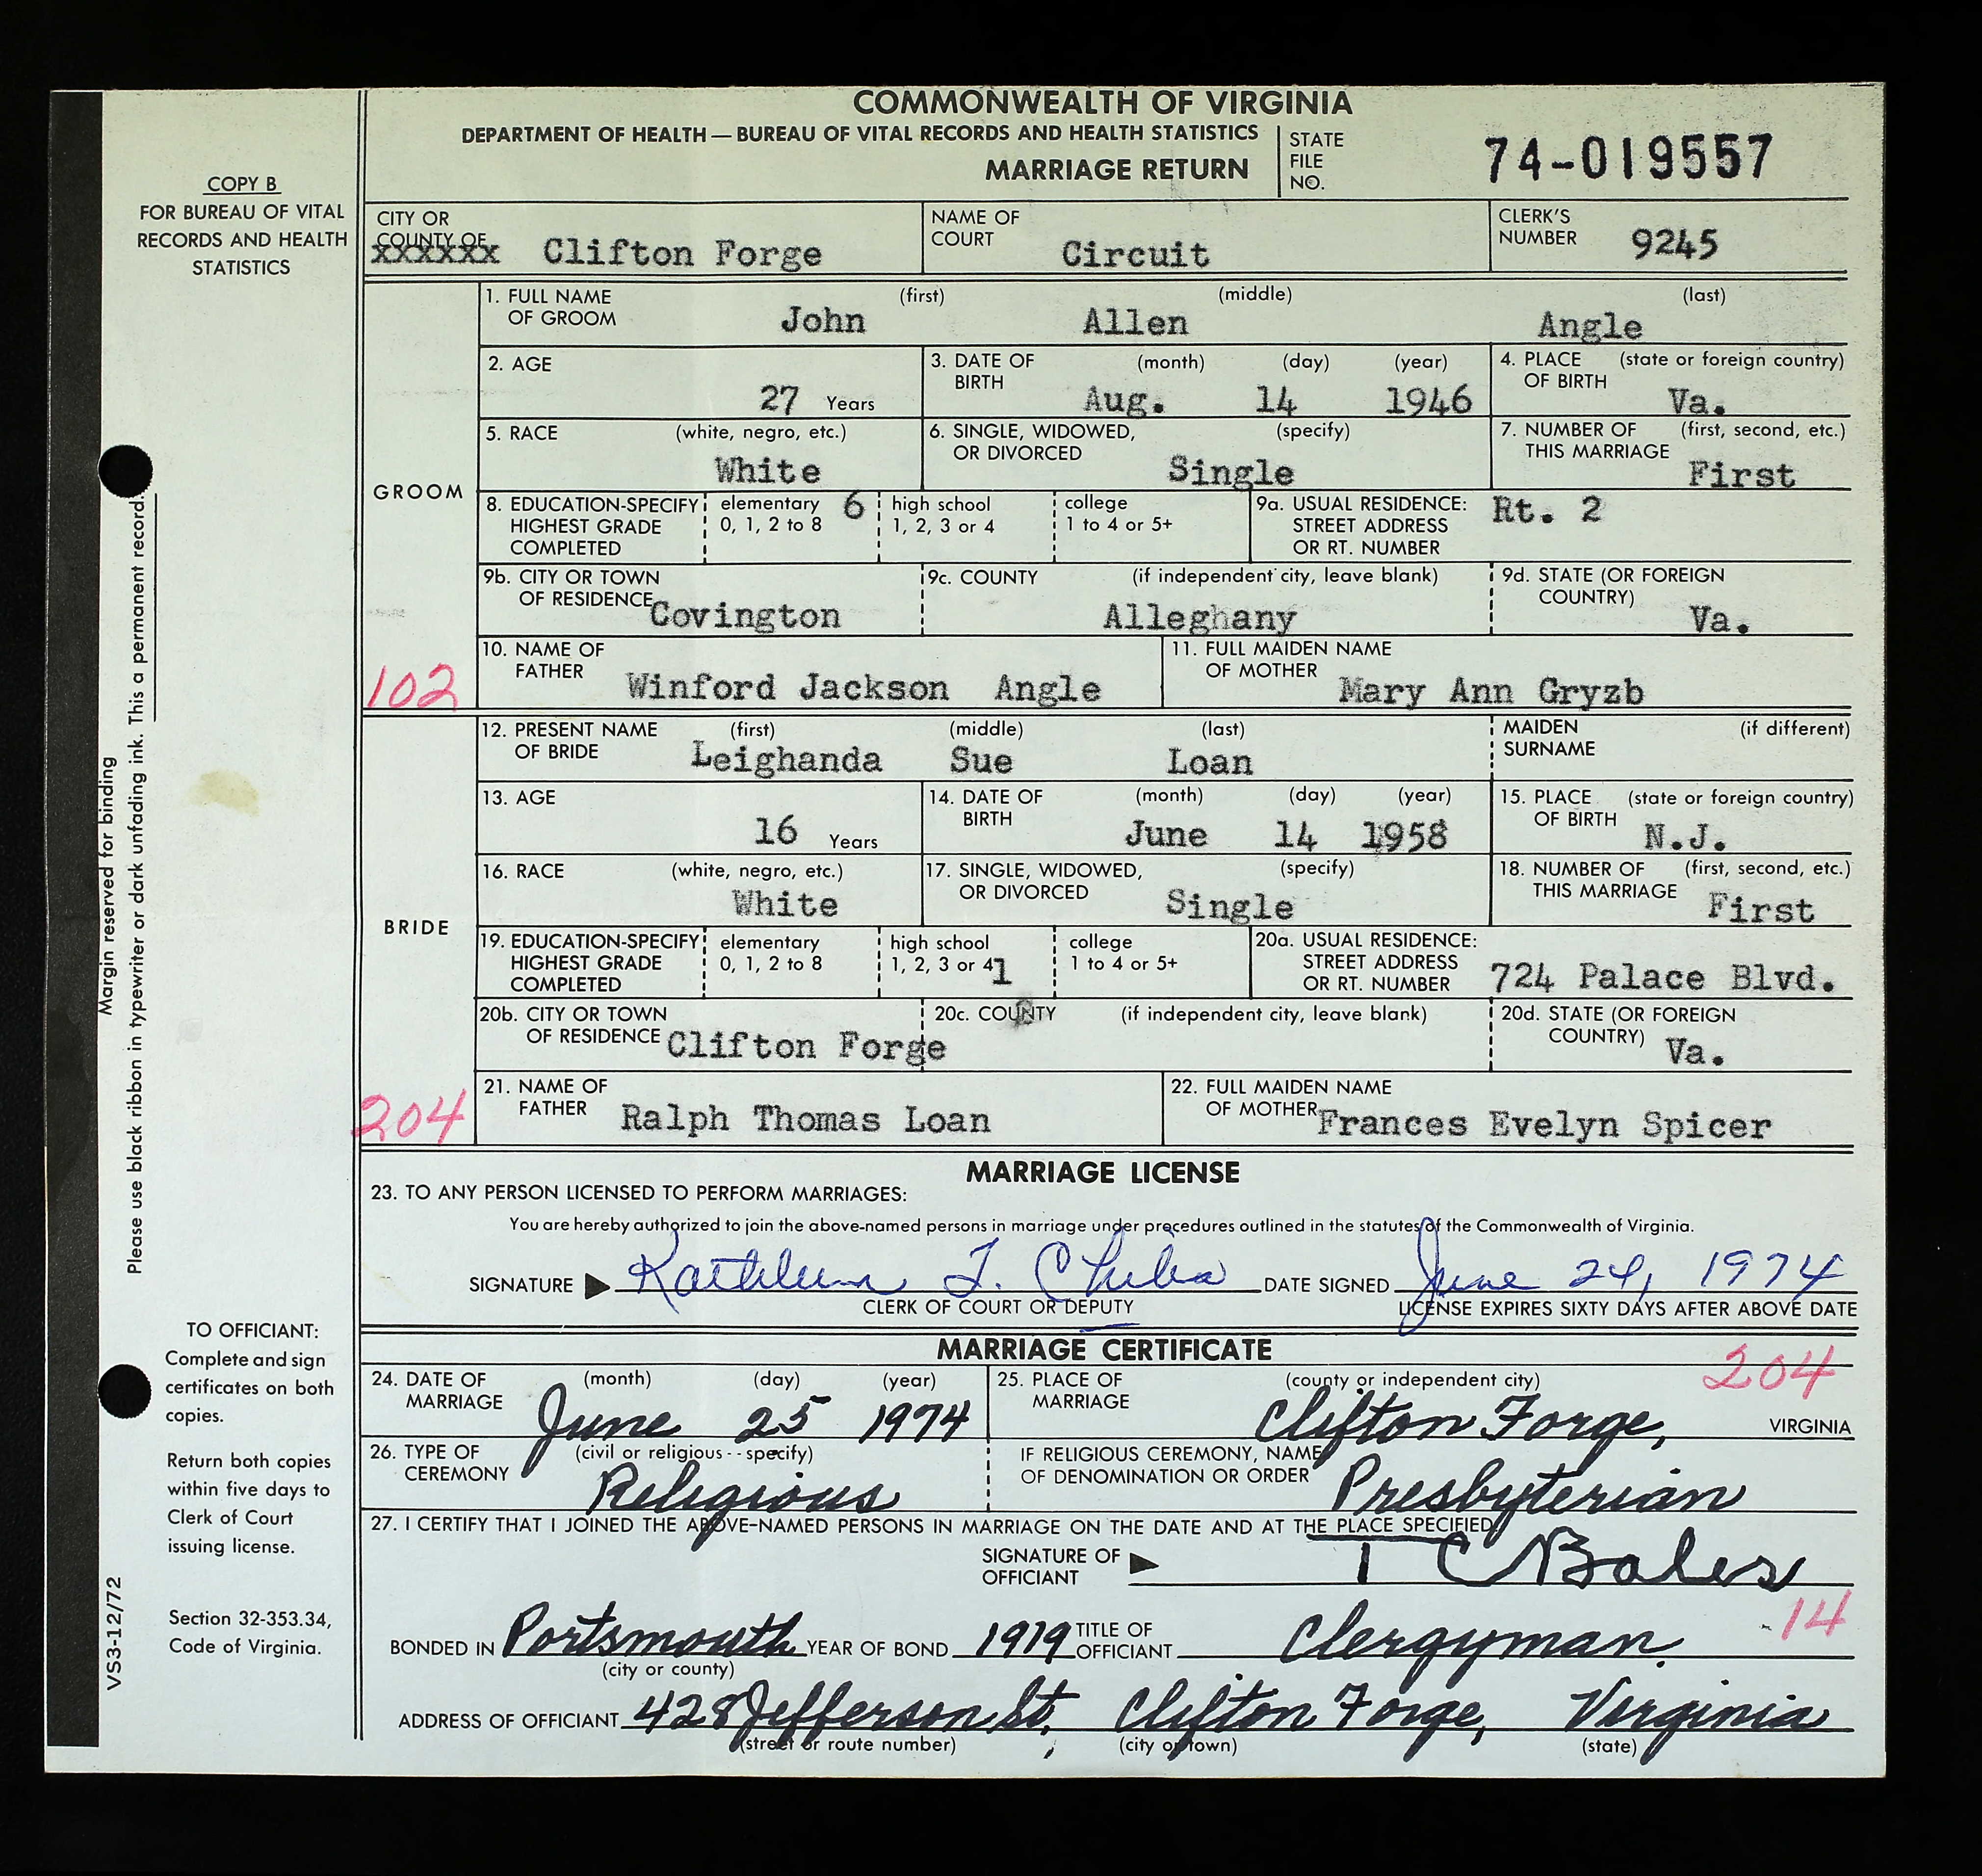 COMMONWEALTH OF VIRGINIA
DEPARTMENT OF HEALTH — BUREAU OF VITAL RECORDS AND HEALTH STATISTICS
MARRIAGE RETURN
STATE FILE NO. 74-019557
COPY B
FOR BUREAU OF VITAL
RECORDS AND HEALTH
STATISTICS
CITY OR COUNTY OF xxxxxx Clifton Forge
NAME OF COURT Circuit
CLERK'S NUMBER 9245
GROOM
1. FULL NAME OF GROOM (first) John (middle) Allen (last) Angle
2. AGE 27 Years
3. DATE OF BIRTH (month) Aug. (day) 14 (year) 1946
4. PLACE OF BIRTH (state or foreign country) Va.
5. RACE (white, negro, etc.) White
6. SINGLE, WIDOWED, OR DIVORCED (specify) Single
7. NUMBER OF THIS MARRIAGE (first, second, etc.) First
8. EDUCATION-SPECIFY HIGHEST GRADE COMPLETED elementary 0, 1, 2 to 8 6 high school 1, 2, 3 or 4 college 1 to 4 or 5+
9a. USUAL RESIDENCE: STREET ADDRESS OR RT. NUMBER Rt. 2
9b. CITY OR TOWN OF RESIDENCE Covington
9c. COUNTY (if independent city, leave blank) Alleghany
9d. STATE (OR FOREIGN COUNTRY) Va.
102
10. NAME OF FATHER Winford Jackson Angle
11. FULL MAIDEN NAME OF MOTHER Mary Ann Gryzb
BRIDE
12. PRESENT NAME OF BRIDE (first) Leighanda (middle) Sue (last) Loan
MAIDEN SURNAME (if different)
13. AGE 16 Years
14. DATE OF BIRTH (month) June (day) 14 (year) 1958
15. PLACE OF BIRTH (state or foreign country) N.J.
16. RACE (white, negro, etc.) White
17. SINGLE, WIDOWED, OR DIVORCED (specify) Single
18. NUMBER OF THIS MARRIAGE (first, second, etc.) First
19. EDUCATION-SPECIFY HIGHEST GRADE COMPLETED elementary 0, 1, 2 to 8 high school 1, 2, 3 or 4 1 college 1 to 4 or 5+
20a. USUAL RESIDENCE: STREET ADDRESS OR RT. NUMBER 724 Palace Blvd.
20b. CITY OR TOWN OF RESIDENCE Clifton Forge
20c. COUNTY (if independent city, leave blank)
20d. STATE (OR FOREIGN COUNTRY) Va.
204
21. NAME OF FATHER Ralph Thomas Loan
22. FULL MAIDEN NAME OF MOTHER Frances Evelyn Spicer
MARRIAGE LICENSE
23. TO ANY PERSON LICENSED TO PERFORM MARRIAGES:
You are hereby authorized to join the above-named persons in marriage under procedures outlined in the statutes of the Commonwealth of Virginia.
SIGNATURE Kathleen DATE SIGNED June 24, 1974
CLERK OF COURT OR DEPUTY
LICENSE EXPIRES SIXTY DAYS AFTER ABOVE DATE
MARRIAGE CERTIFICATE
204
24. DATE OF MARRIAGE (month) June (day) 25 (year) 1974
25. PLACE OF MARRIAGE (county or independent city) Clifton Forge, VIRGINIA
26. TYPE OF CEREMONY (civil or religious--specify) Religious
IF RELIGIOUS CEREMONY, NAME OF DENOMINATION OR ORDER Presbyterian
27. I CERTIFY THAT I JOINED THE ABOVE-NAMED PERSONS IN MARRIAGE ON THE DATE AND AT THE PLACE SPECIFIED
SIGNATURE OF OFFICIANT T C Bales
14
BONDED IN Portsmouth (city or county) YEAR OF BOND 1919 TITLE OF OFFICIANT Clergyman
ADDRESS OF OFFICIANT 428 Jefferson St, Clifton Forge, Virginia
(street or route number) (city or town) (state)
Margin reserved for binding
Please use black ribbon in typewriter or dark unfading ink. This a permanent record.
TO OFFICIANT:
Complete and sign
certificates on both
copies.
Return both copies
within five days to
Clerk of Court
issuing license.
Section 32-353.34,
Code of Virginia.
VS3-12/72